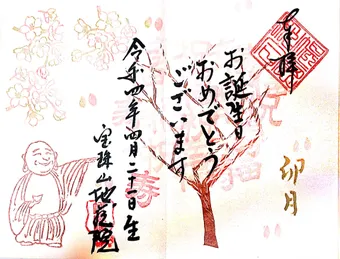 奉拝
卯月
お誕生日
おめでとう
ございます
令和四年四月二十一日生
宝珠山地蔵院